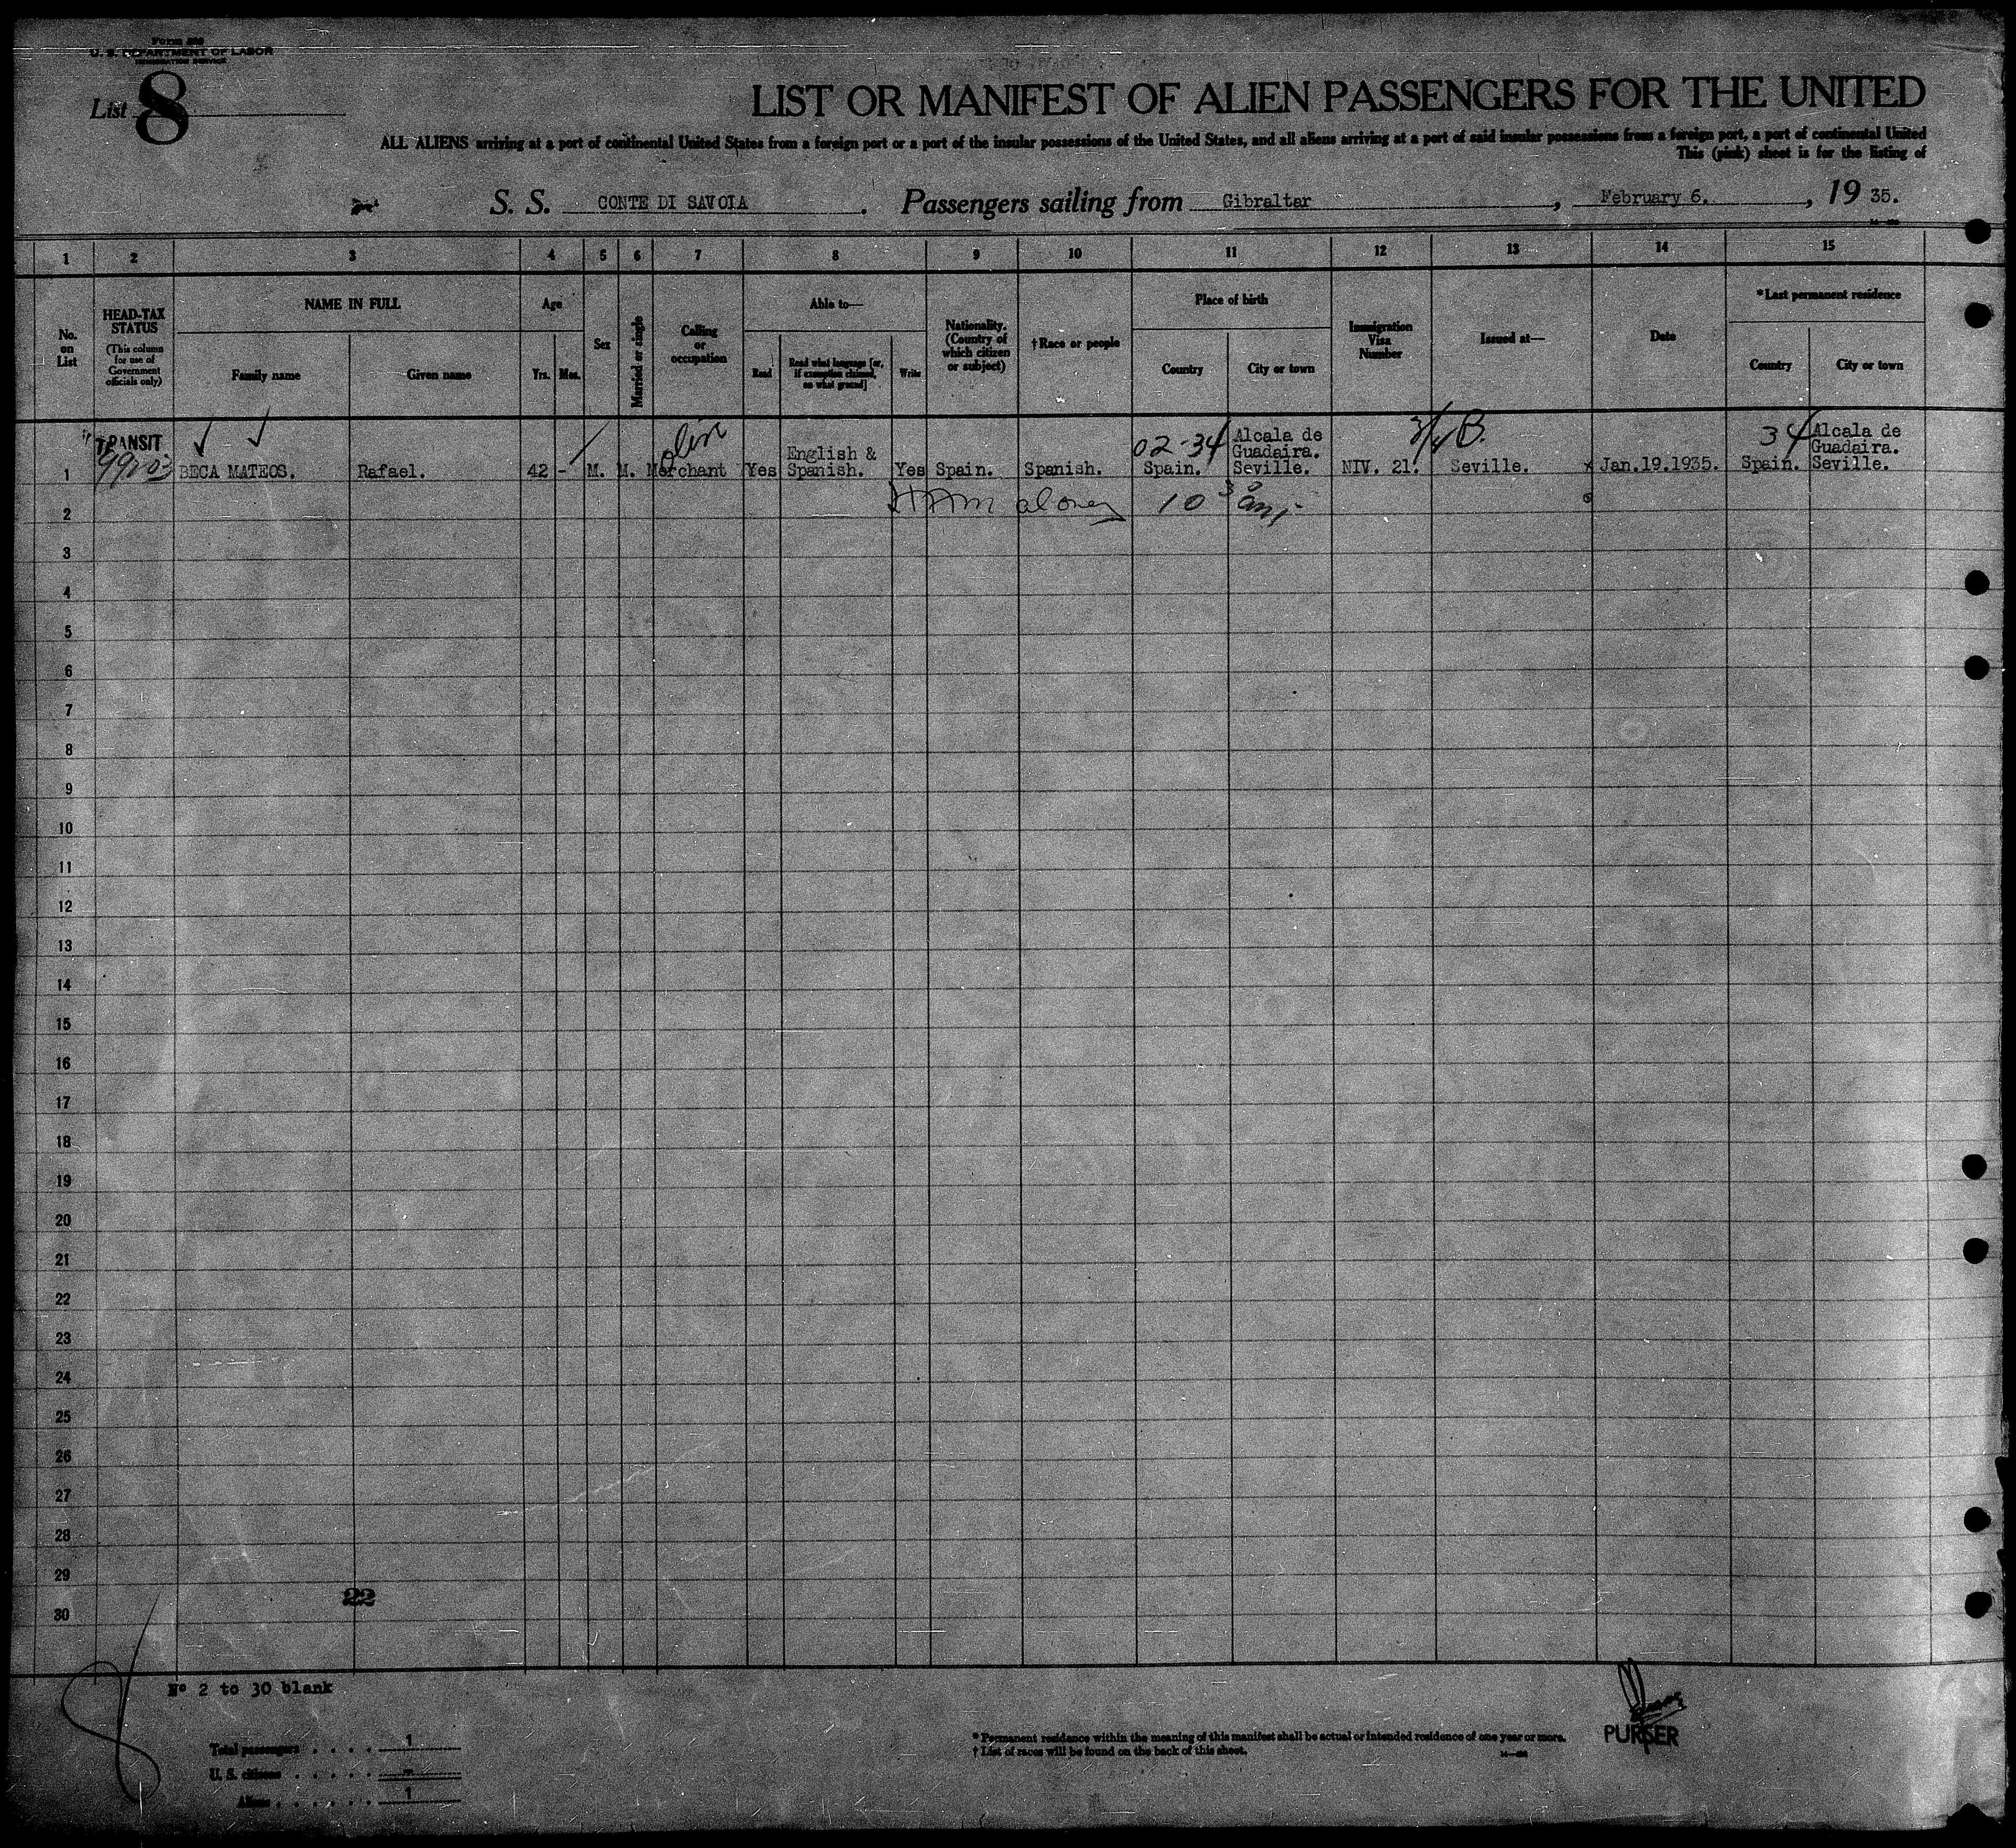 Form 500
U. S. DEPARTMENT OF LABOR
IMMIGRATION SERVICE
List 8
LIST OR MANIFEST OF ALIEN PASSENGERS FOR THE UNITED
ALL ALIENS arriving at a port of continental United States from a foreign port or a port of the insular possessions of the United States, and all aliens arriving at a port of said insular possessions from a foreign port, a port of continental United
This (pink) sheet is for the listing of
S. S. CONTE DI SAVOIA. Passengers sailing from Gibraltar, February 6., 19 35.
1 2 3 4 5 6 7 8 9 10 11 12 13 14 15
No. on List
HEAD-TAX STATUS
(This column for use of Government officials only)
NAME IN FULL
Family name
Given name
Age
Yrs. Mos.
Sex
Married or single
Calling or occupation
Able to—
Read
Read what language [or, if exemption claimed, on what ground]
Write
Nationality. (Country of which citizen or subject)
†Race or people
Place of birth
Country
City or town
Immigration Visa Number
Issued at—
Date
*Last permanent residence
Country
City or town
TRANSIT
olive
02-34
3/4 B.
34
1 BECA MATEOS. Rafael. 42 - M. M. Merchant Yes English & Spanish. Yes Spain. Spanish. Spain. Alcala de Guadaira. Seville. NIV. 21. Seville. Jan.19.1935. Spain. Alcala de Guadaira. Seville.
2 10 30 am
3
4
5
6
7
8
9
10
11
12
13
14
15
16
17
18
19
20
21
22
23
24
25
26
27
28
29
22
30
Nº 2 to 30 blank
Total passengers . . . . 1
U. S. citizens . . . . . -
Aliens . . . . . . 1
* Permanent residence within the meaning of this manifest shall be actual or intended residence of one year or more.
† List of races will be found on the back of this sheet.
PURSER